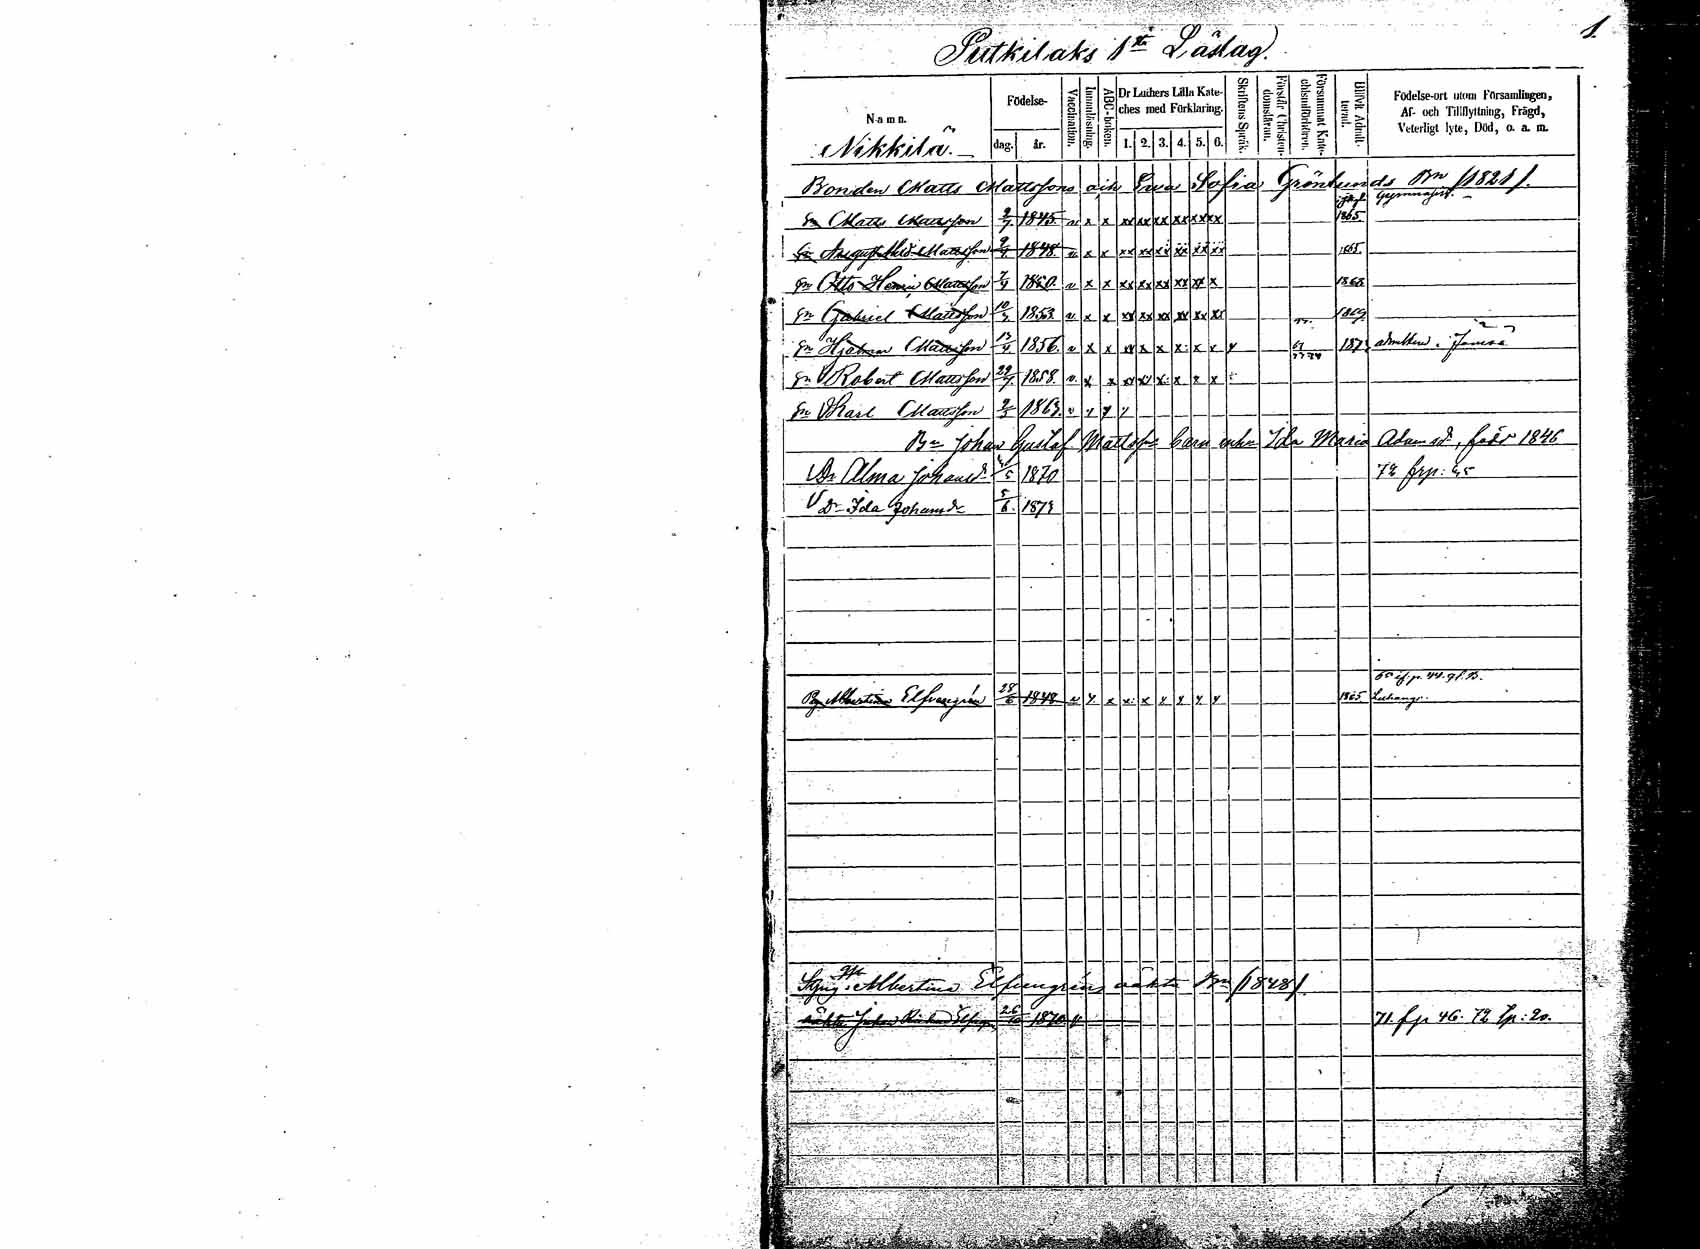 1.
Putkilaks 1sta Läslag.
Namn.
Födelse-
dag. år.
Vaccination.
Innanläsning.
ABC-boken.
Dr Luthers Lilla Kateches med Förklaring.
1. 2. 3. 4. 5. 6.
Skriftens Språk.
Förstår Christendomsläran.
Försummat Katechismiförhören.
Blifvit Admitterad.
Födelse-ort utom Församlingen, Af- och Tillflyttning, Frägd, Veterligt lyte, Död, o. a. m.
Nikkilä.
Bonden Matts Mattssons och Eva Sofia Grönlunds Bn (1821).
Sn Matts Mattsson 2/7 1845 v x x xx xx xx xx xx xx 1865 Gymnasist.
Sn August Mattsson 2/4 1848. v x x xx xx xx xx xx xx 1865.
Sn Otto Henric Mattsson 7/4 1850. v x x xx xx xx xx xx x 1868
Sn Gabriel Mattsson 10/3 1853. v x x xx xx xx xx xx xx 1869
Sn Hjalmar Mattsson 13/4 1856. v x x xx x x x x x 187
Sn Robert Mattsson 29/7 1858. v. x x xx xx x x x x
Sn Karl Mattsson 2/3 1863. v
Bn Johan Gustaf Mattsons barn enka Ida Maria Adamsdr, född 1846
Dr Alma Johansdr /5 1870 72 frp: 45
Dr Ida Johansdr 5/6. 1873
Pig Albertina Elfvengrén 28/6 1848 v x x x x 1865
Albertina Elfvengréns oäkta Bn (1848).
oäkta Johan Elfvengren 26/10 1870 v 71. fp 46. 72 tp: 20.